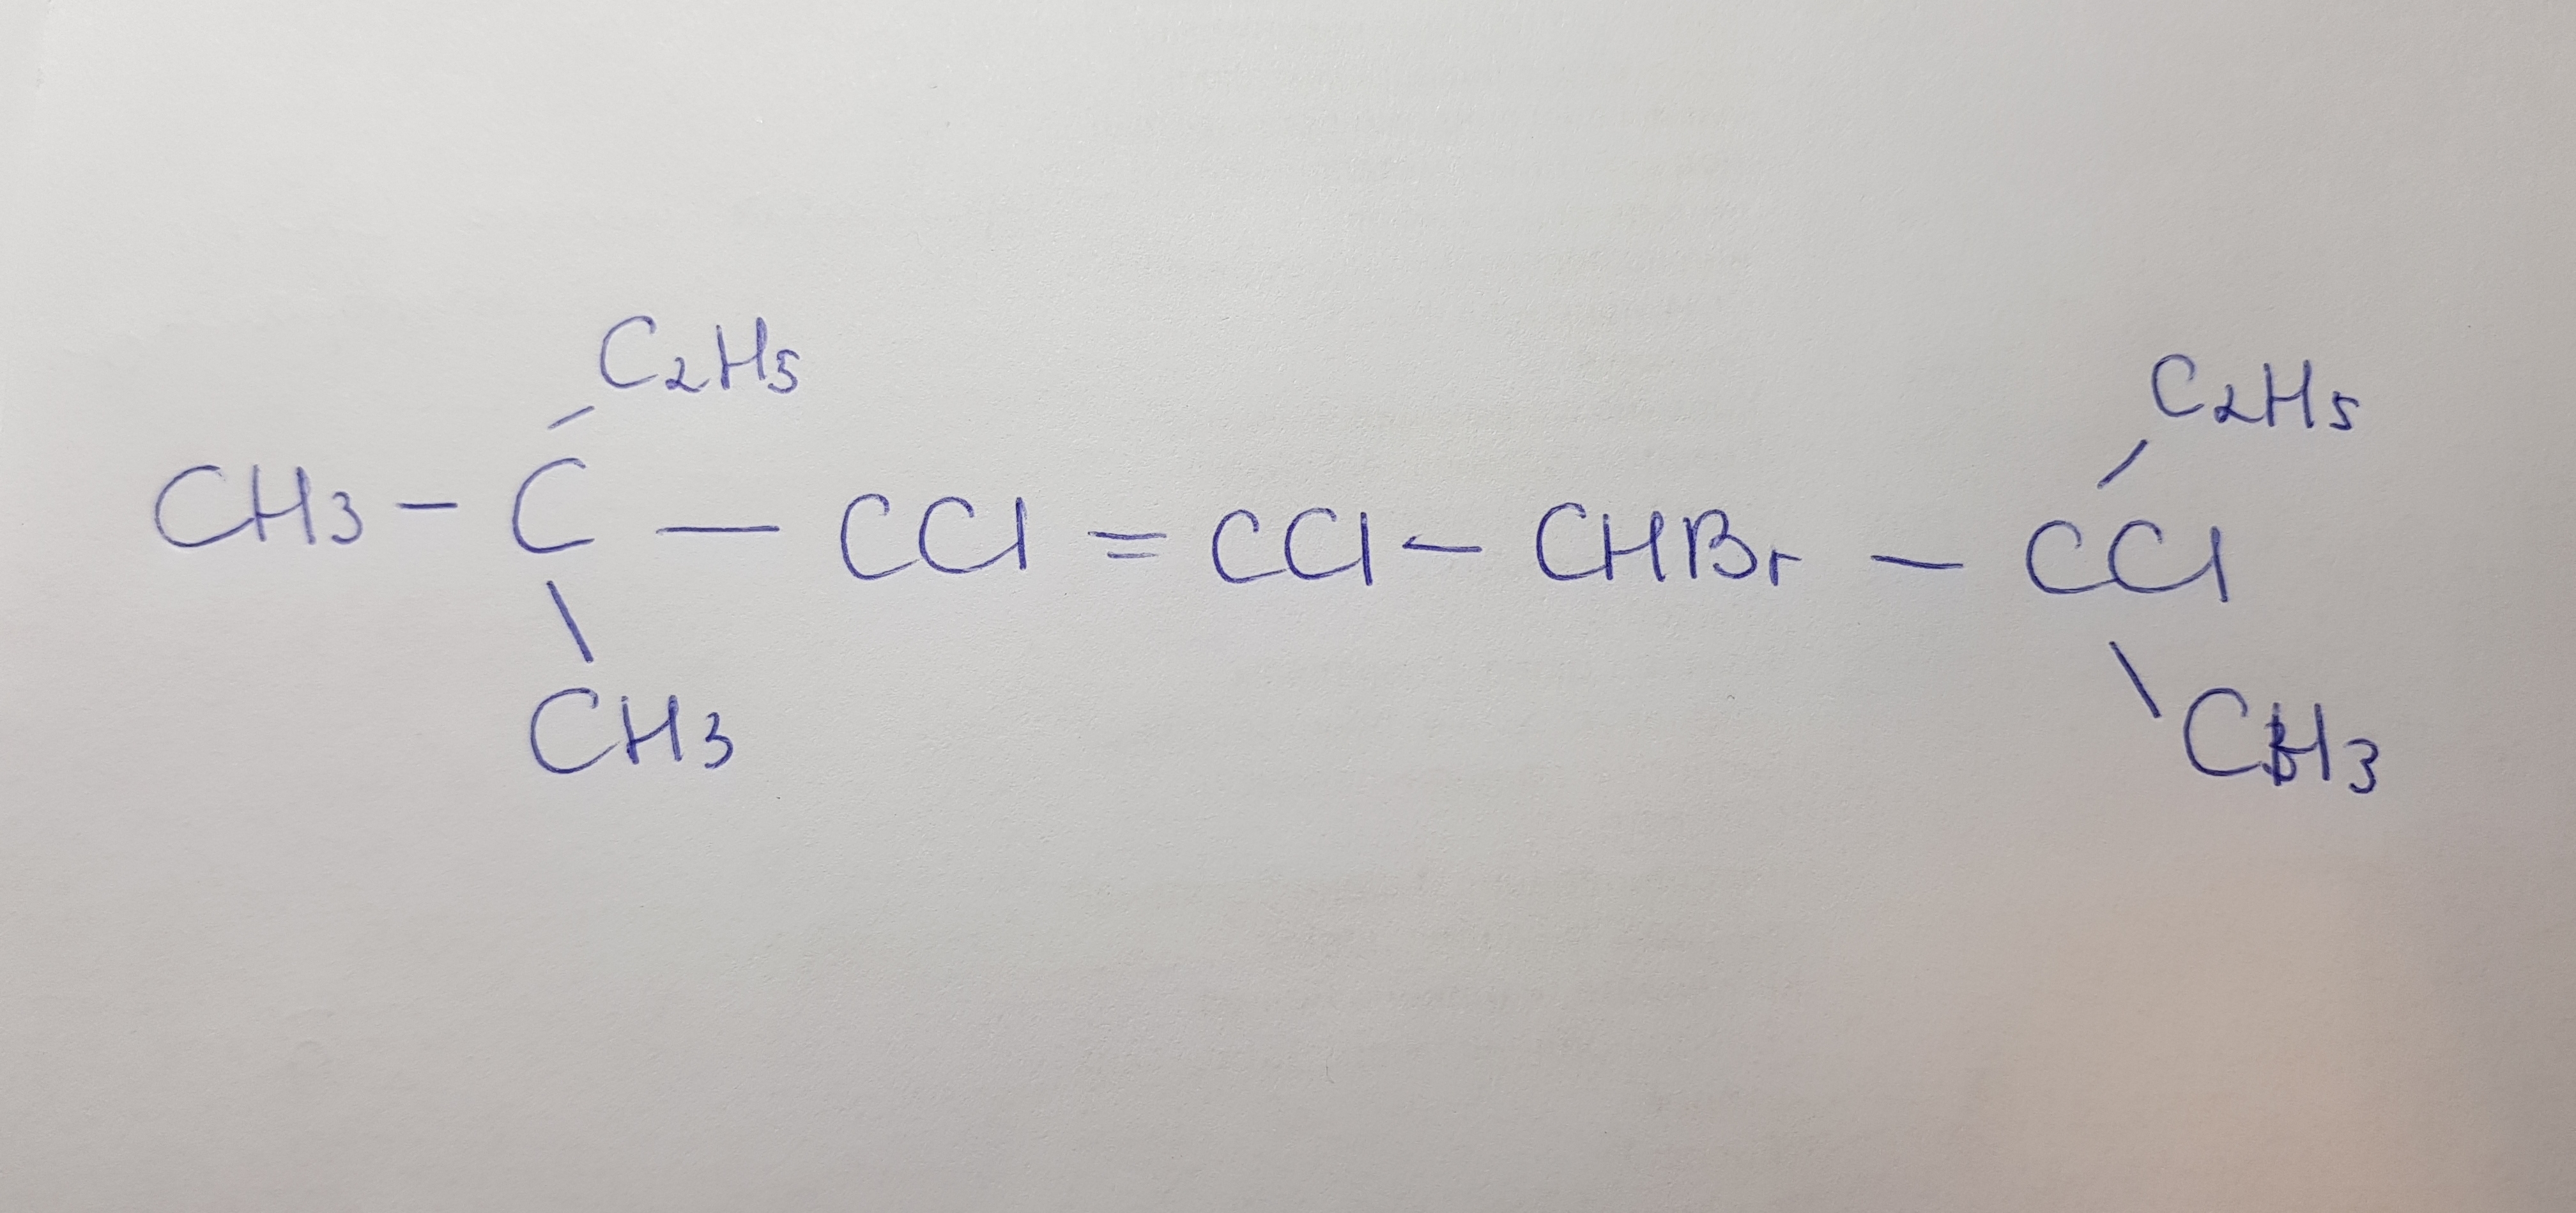 C2H5 C2H5
CH3 - C - CCl = CCl - CHBr - CCl
CH3 CH3